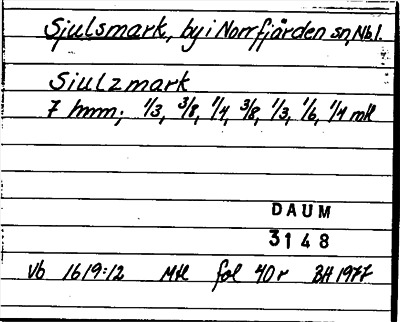 Sjulsmark, by i Norrfjärden sn, Nbl.
Siulzmark
7 hmn; 1/3, 3/8, 1/4, 3/8, 1/3, 1/6, 1/4 mtl
DAUM
3148
Vb 1619:12 Mtl fol 40r BH 1977